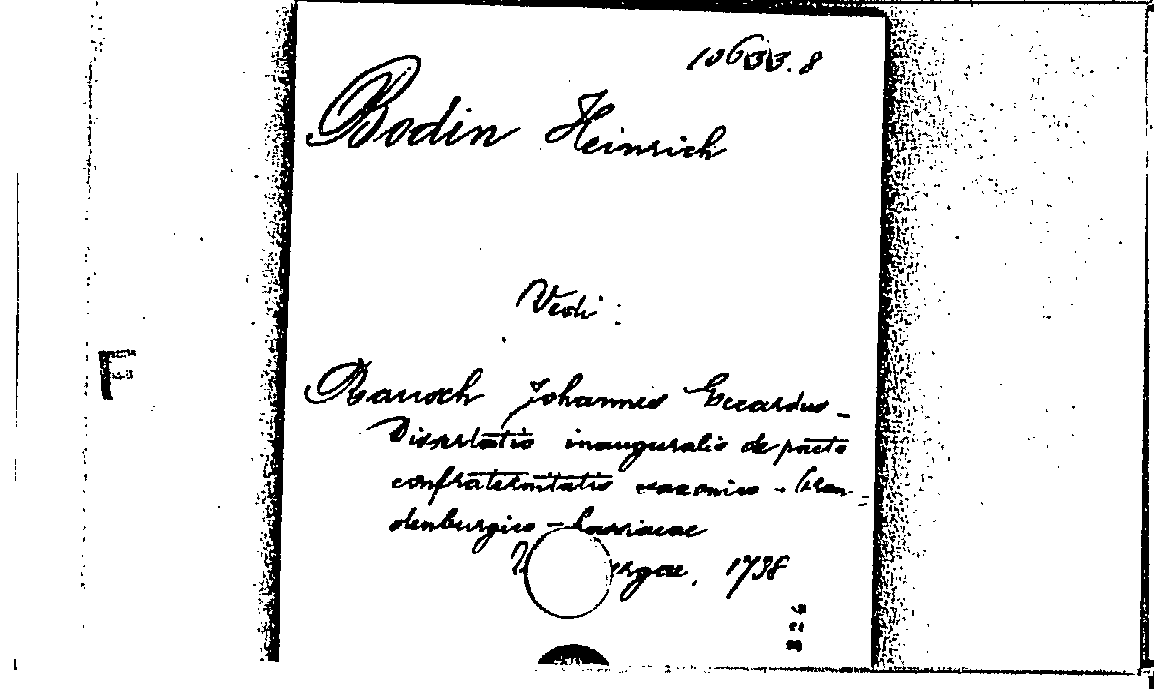 10633.8
Bodin Heinrich
Vedi :
F
Johannes Eccardus -
Dissertatio inauguralis de pacto
confraternitatis saxonico - bran=
denburgico - hassiacae
rgae, 1738